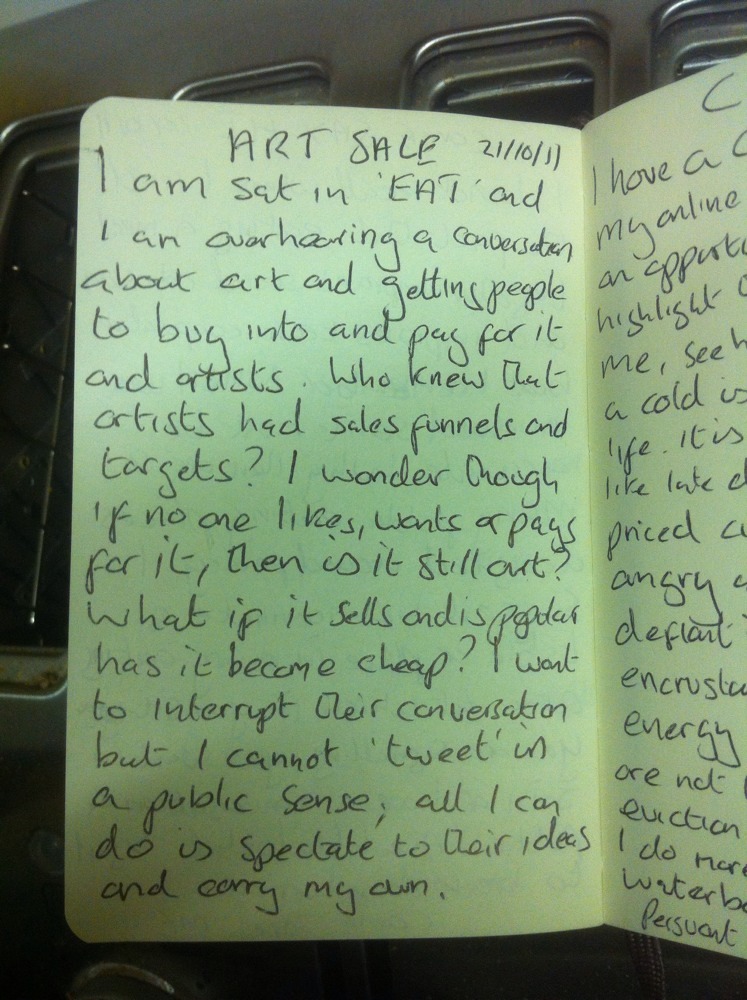 ART SALE 21/10/11
I am sat in 'EAT' and
I am overhearing a conversation
about art and getting people
to buy into and pay for it
and artists. Who knew that
artists had sales funnels and
targets? I wonder though
if no one likes, wants or pays
for it, then is it still art?
What if it sells and is popular
has it become cheap? I want
to interrupt their conversation
but I cannot 'tweet' in
a public sense; all I can
do is spectate to their ideas
and carry my own.
C
I have a C
my online
an opportu
highlight
me, see h
a cold is
life. It is
like late d
priced cu
angry
defiant
encrusta
energy
are not
eviction
I do more
waterbo
Persuant